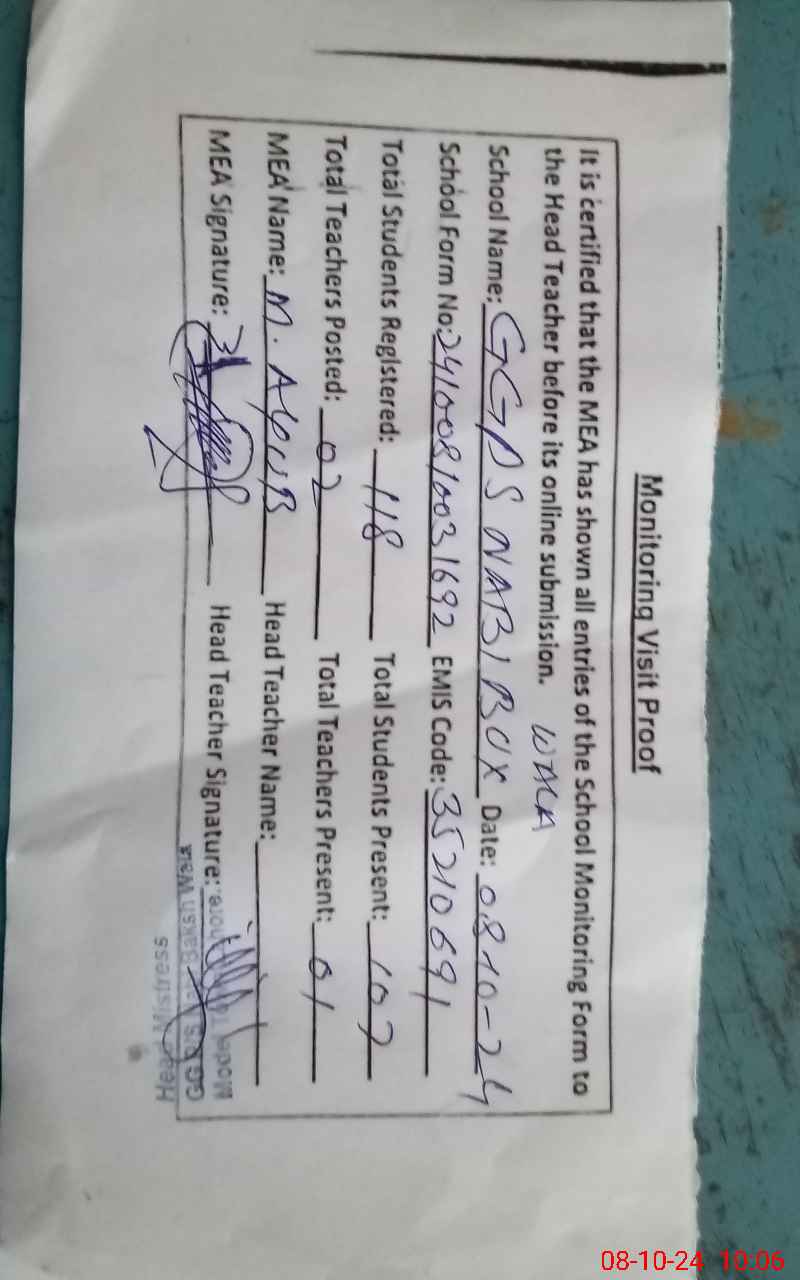 Monitoring Visit Proof
It is certified that the MEA has shown all entries of the School Monitoring Form to
the Head Teacher before its online submission.
School Name: GGPS NABI BUX WALA Date: 08-10-24
School Form No: 24100810031692 EMIS Code: 35210691
Total Students Registered: 118 Total Students Present: 107
Total Teachers Posted: 02 Total Teachers Present: 01
MEA Name: M. AYUB Head Teacher Name:
MEA Signature: Head Teacher Signature:
Head Mistress
GG Baksh Wala
Model
08-10-24 10:06